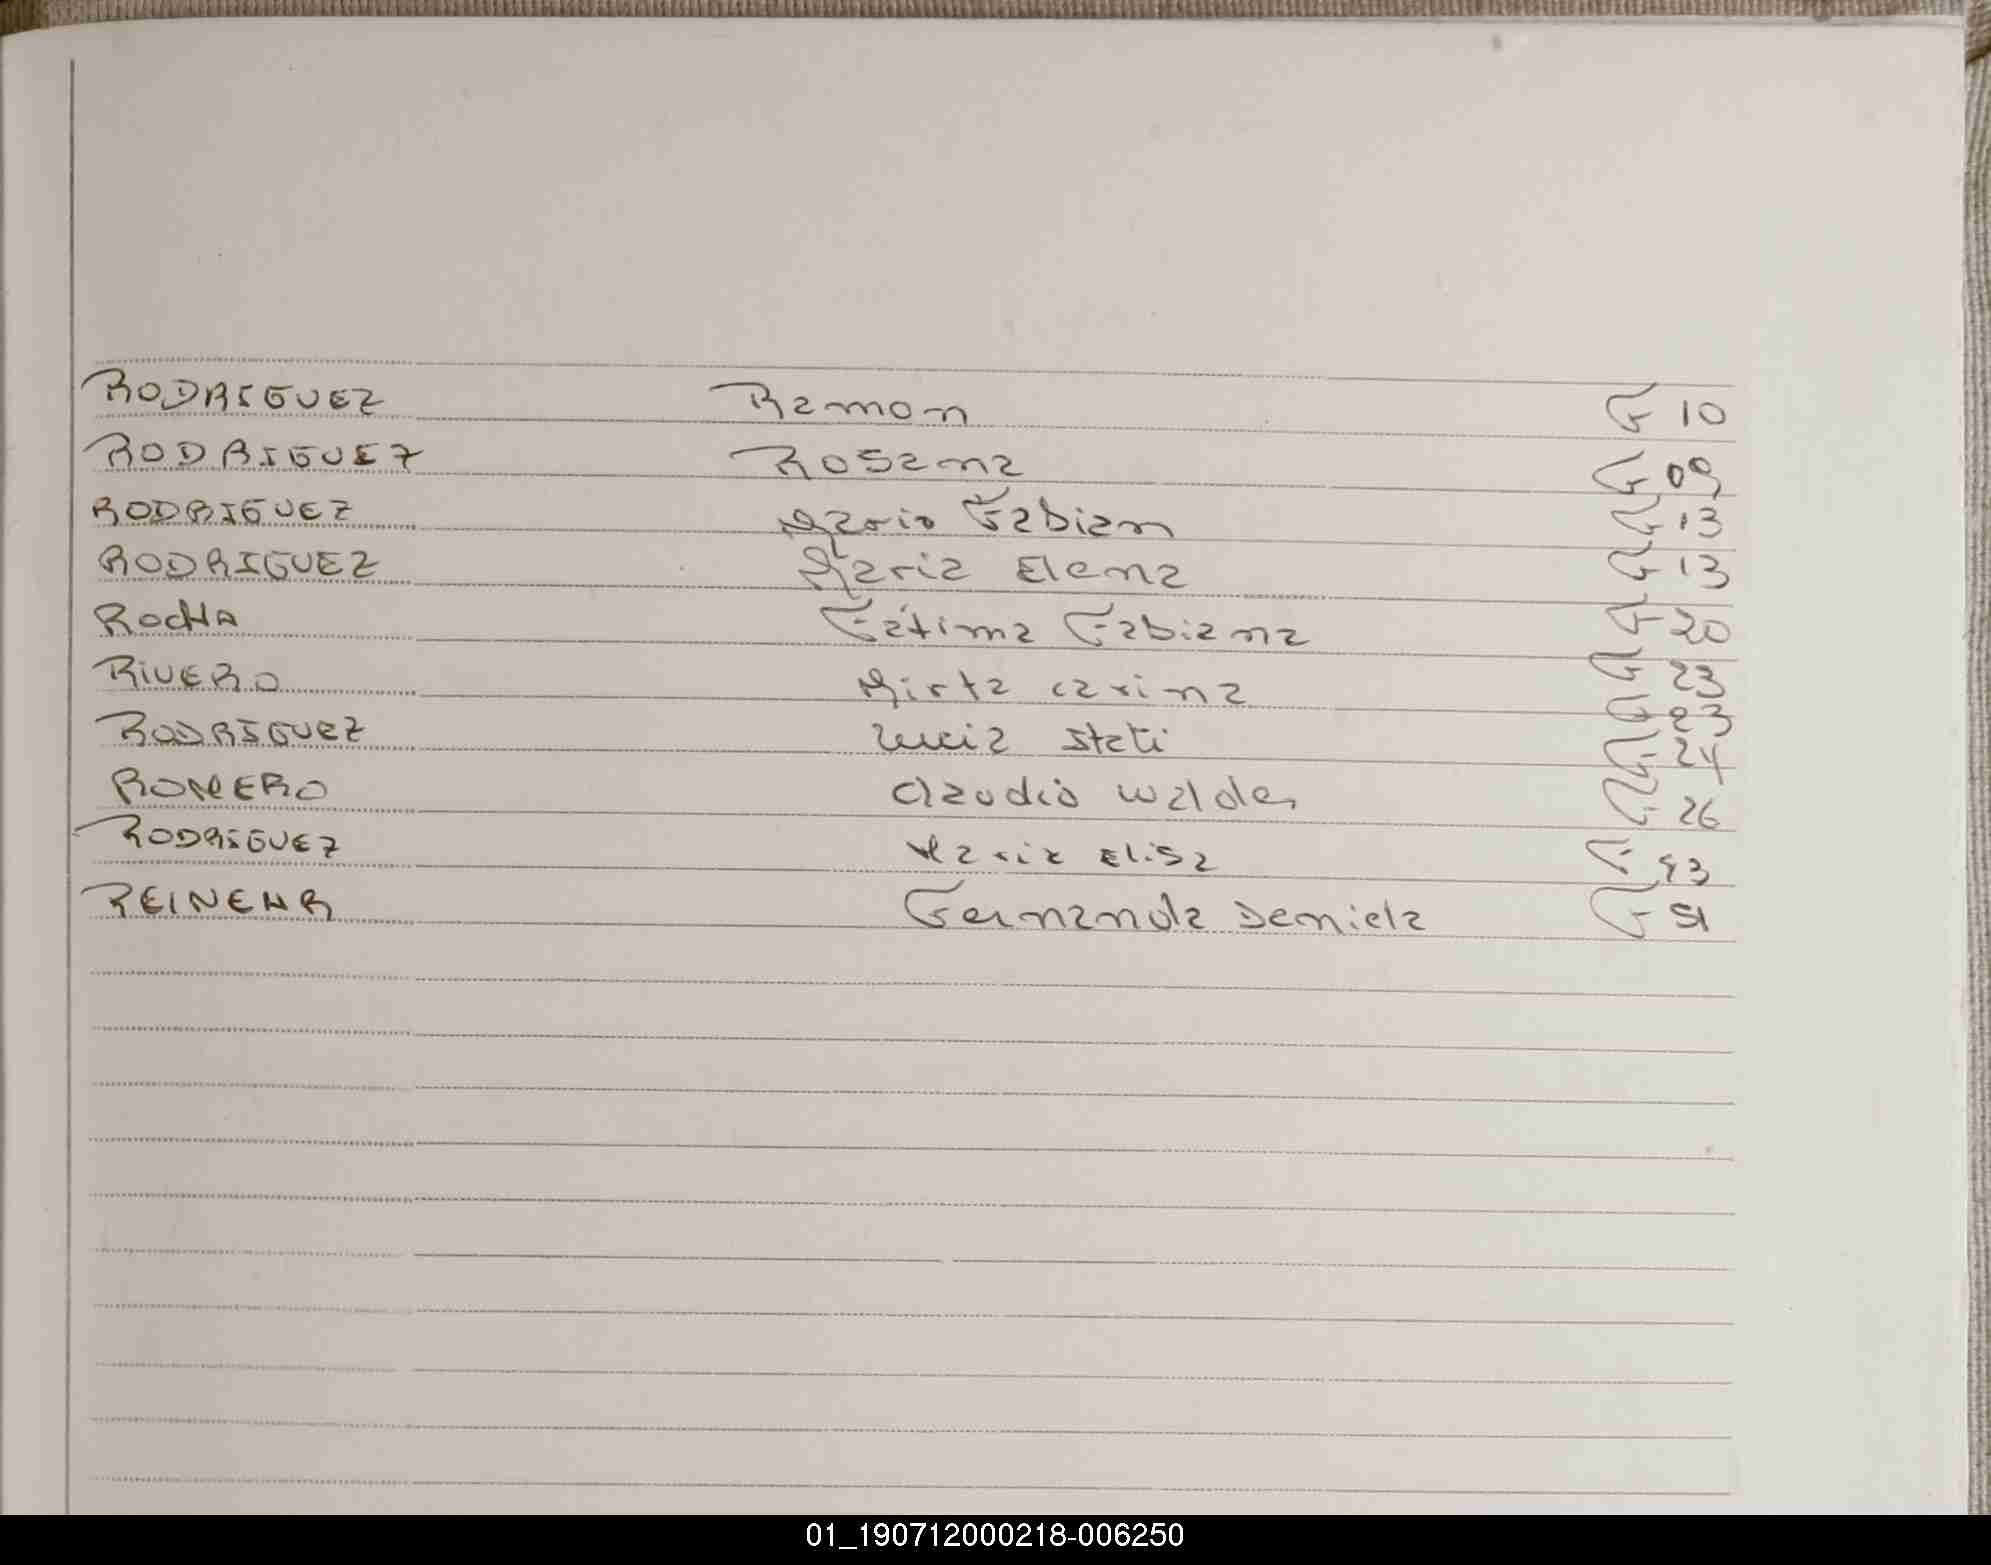 RODRIGUEZ Ramon F 10
RODRIGUEZ Rosana F 09
RODRIGUEZ Mario Fabian F 13
RODRIGUEZ Maria Elena F 13
ROCHA Fátima Fabiana F 20
RIVERO Mirta Carina F 23
F 23
RODRIGUEZ Lucia F 24
ROMERO Claudio F 26
RODRIGUEZ Maria Elisa F
REINEHR Fernanda Daniela F 51
01_190712000218-006250